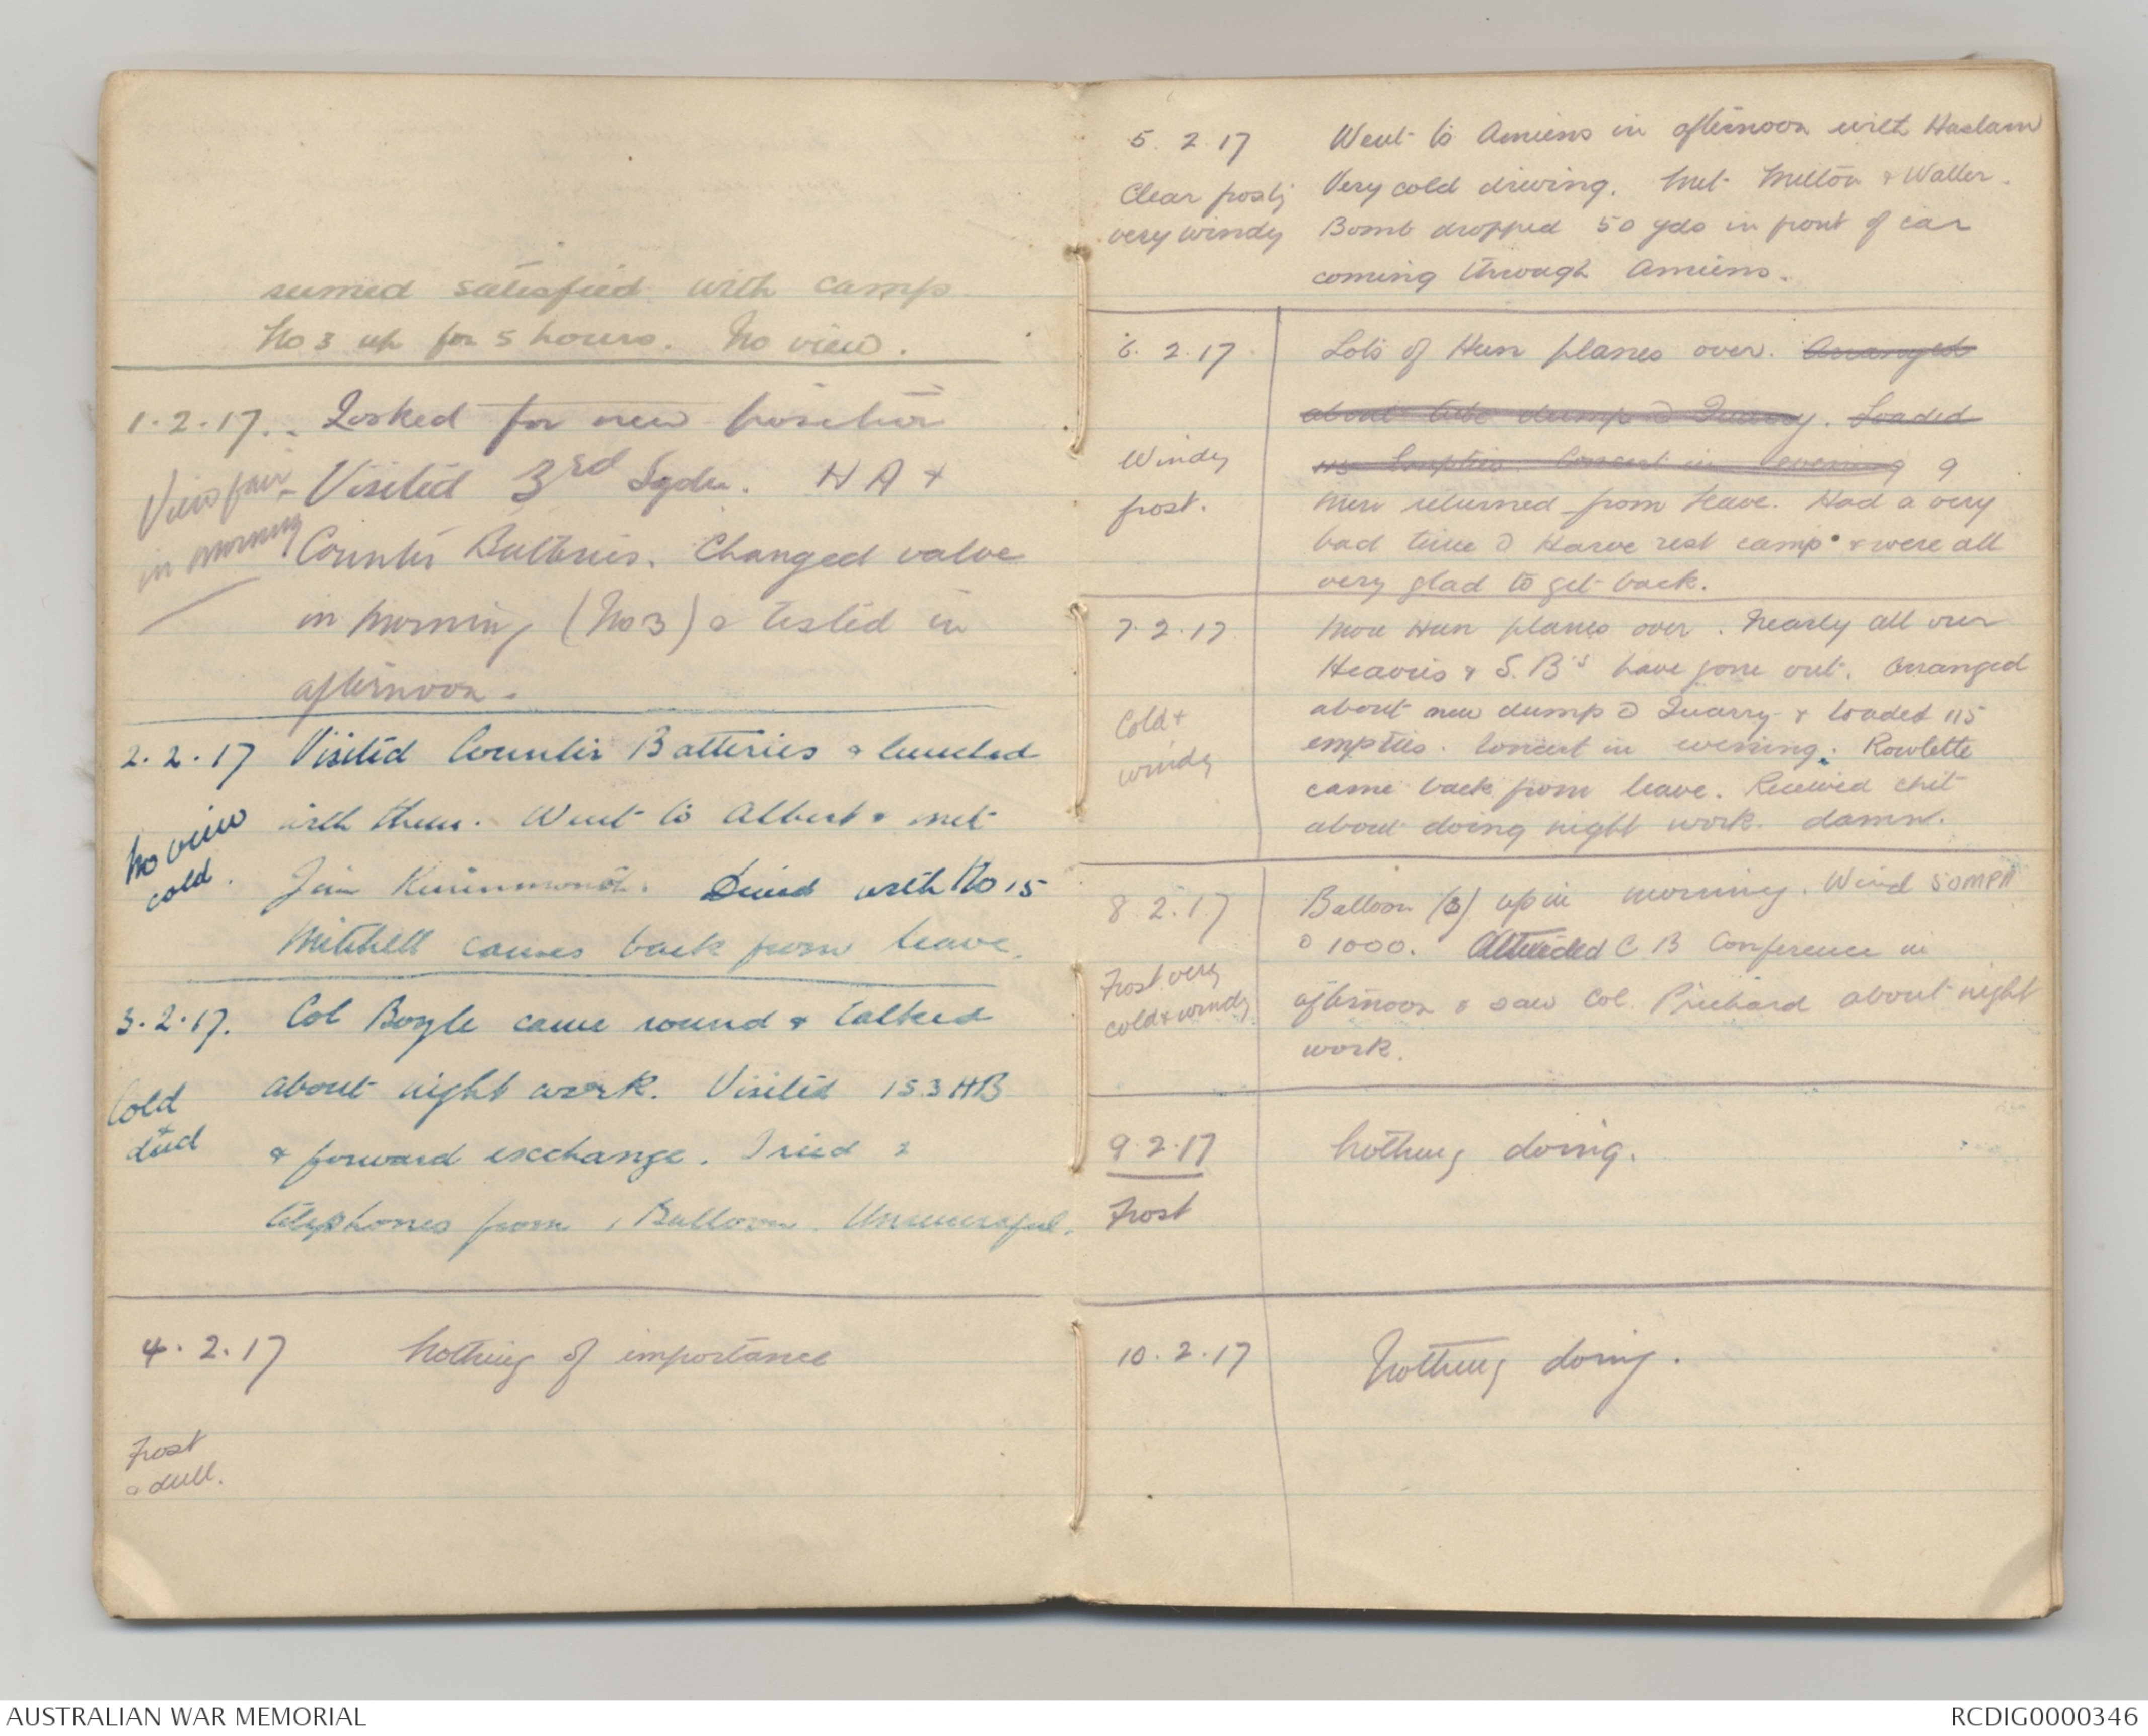 seemed satisfied with camp
No 3 up for 5 hours. No view.
1.2.17. Looked for new position
View fair in morning
Visited 3rd Sqdn. H A +
Counter Batteries. Changed valve
in morning (No 3) & tested in
afternoon.
2.2.17 Visited Counter Batteries & lunched
No view cold.
with them. Went to Albert & met
Jim . Dined with No 15
Mitchell comes back from leave.
3.2.17. Col Boyle came round & talked
Cold & dud
about night work. Visited 153 HB
& forward exchange. Tried 2
telephones from 1 Balloon. Unsuccessful.
4.2.17 Nothing of importance
Frost
& dull.
5.2.17 Went to Amiens in afternoon with Haslam
Clear frosty Very cold driving. Met Milton & Waller.
very windy Bomb dropped 50 yds in front of car
coming through Amiens.
6.2.17 Lots of Hun planes over. Arranged
about tube dump @ Quarry. Loaded
Windy 115 Empties. Concert in evening 9
frost. men returned from leave. Had a very
bad time @ Harve rest camp & were all
very glad to get back.
7.2.17 More Hun planes over. Nearly all our
Heavies & S.B's have gone out. Arranged
Cold & about new dump @ Quarry & loaded 115
windy empties. Concert in evening. Rowlette
came back from leave. Received chit
about doing night work. damn.
8.2.17 Balloon (3) up in morning. Wind 50 MPH
@ 1000. Attended C B Conference in
Frost very cold & windy
afternoon & saw Col. Prichard about night
work.
9.2.17 Nothing doing.
Frost
10.2.17 Nothing doing.
AUSTRALIAN WAR MEMORIAL
RCDIG0000346